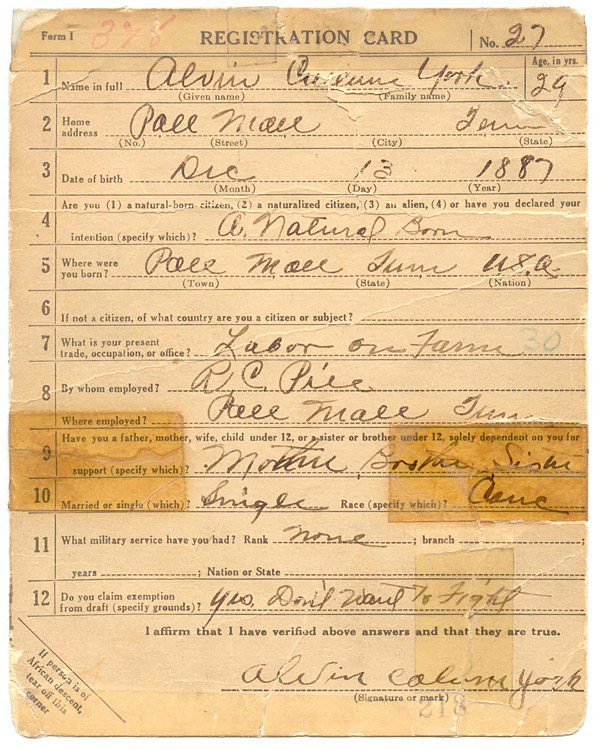 Form I 328 REGISTRATION CARD No. 27
1 Name in full Alvin York. Age, in yrs. 29
(Given name) (Family name)
2 Home address Pall Mall Tenn
(No.) (Street) (City) (State)
3 Date of birth Dec 13 1887
(Month) (Day) (Year)
4 Are you (1) a natural-born citizen, (2) a naturalized citizen, (3) an alien, (4) or have you declared your
intention (specify which)? A. Natural Born
5 Where were you born? Pall Mall Tenn U.S.A
(Town) (State) (Nation)
6 If not a citizen, of what country are you a citizen or subject?
7 What is your present trade, occupation, or office? Labor on Farm 30
8 By whom employed? R.C. Pile
Where employed? Pall Mall Tenn
9 Have you a father, mother, wife, child under 12, or a sister or brother under 12, solely dependent on you for
support (specify which)? Mother, Brother Sister
10 Married or single (which)? Single Race (specify which)?
11 What military service have you had? Rank none ; branch ;
years ; Nation or State
12 Do you claim exemption from draft (specify grounds)? yes. Don't Want To Fight
I affirm that I have verified above answers and that they are true.
alvin york
(Signature or mark)
218
If person is of
African descent,
tear off this
corner